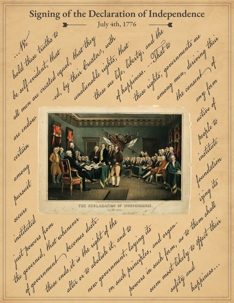 Signing of the Declaration of Independence
July 4th, 1776
We
hold these truths to
be self-evident, that
all men are created equal, that they
are endow by their Creator,
certain unalienable rights, that
among these are life, liberty, and the
pursuit of happiness. — That to
these rights, governments are
instituted among men, deriving their
just powers from the consent of
the governed, that whenever any form
of government becomes dest- ructive of
these ends, it is the right of the people to
alter or to abolish it, and to institute
new government, laying its foundation
on such principles, and organ- izing its
powers in such form, as to them shall
seem most likely to effect their
safety and happiness...
THE DECLARATION OF INDEPENDENCE